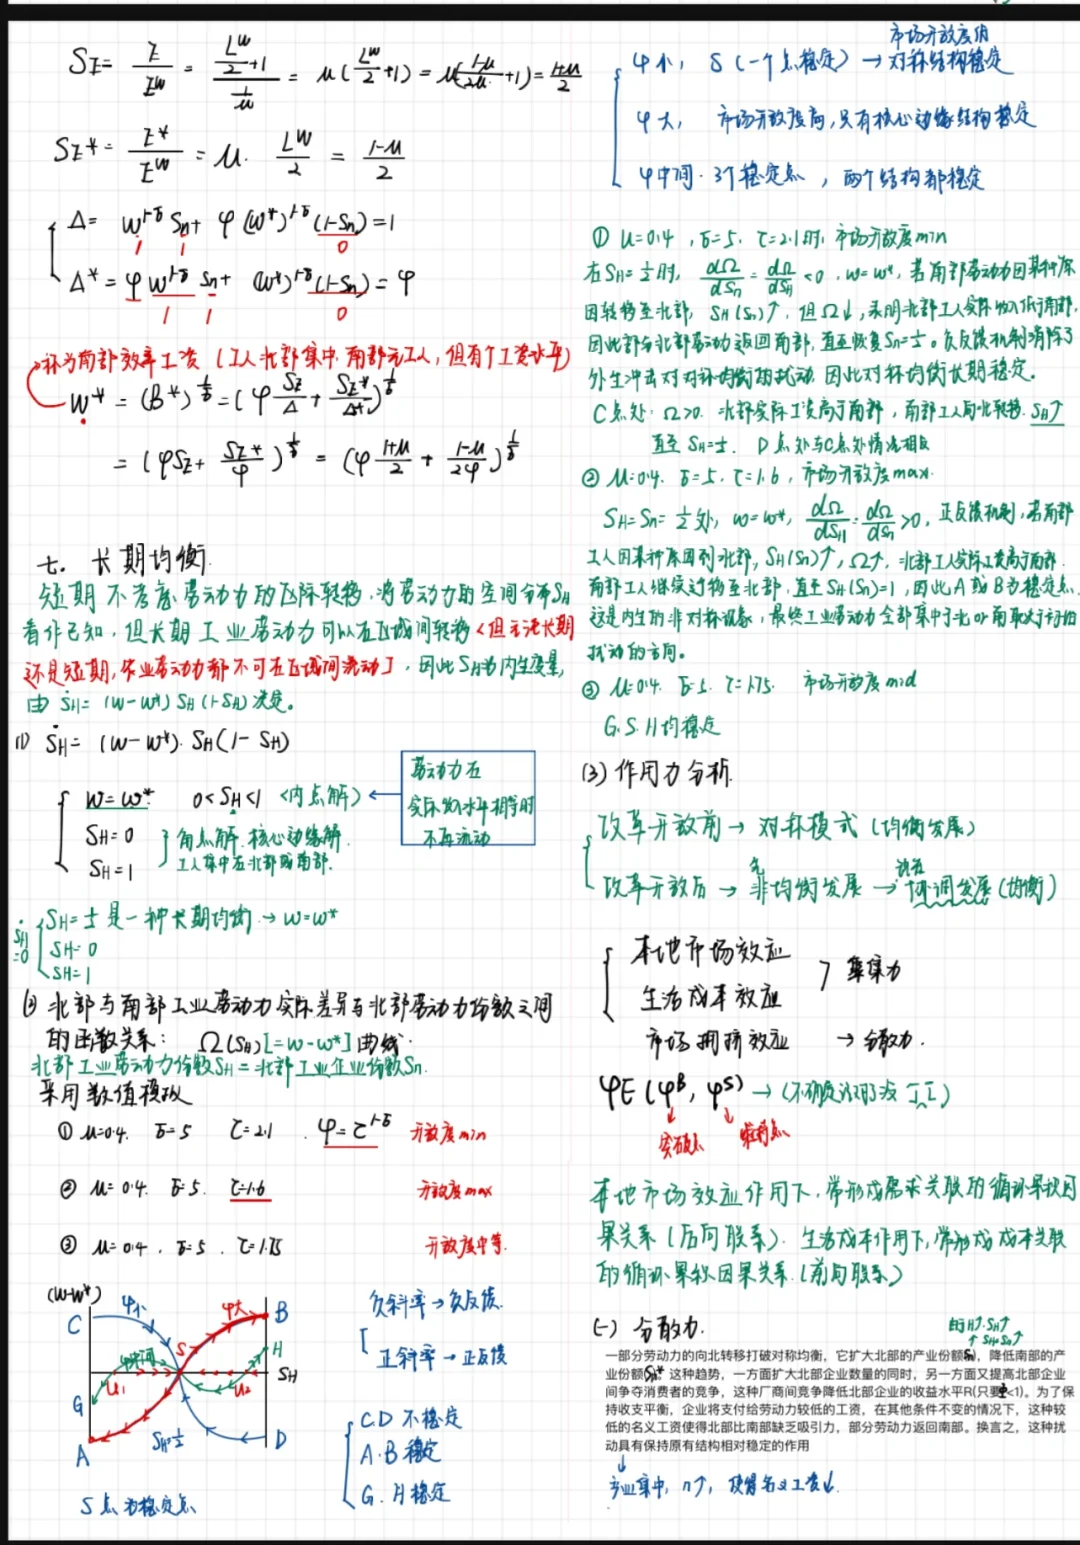 S_E = E/E^w = (L^w/2+1)/(1/μ) = μ(L^w/2+1) = μ((1-μ)/2μ+1) = (1+μ)/2
S_E* = E*/E^w = μ·L^w/2 = (1-μ)/2
Δ = w^(1-σ) Sn + φ(w*)^(1-σ)(1-Sn) = 1
1 1 0
Δ* = φ w^(1-σ) Sn + (w*)^(1-σ)(1-Sn) = φ
1 1 0
称为南部效率工资(工人北部集中,南部无工人,但有个工资水平)
w* = (B*)^(1/σ) = (φ S_E/Δ + S_E*/Δ*)^(1/σ)
= (φS_E + S_E*/φ)^(1/σ) = (φ (1+μ)/2 + (1-μ)/2φ)^(1/σ)
七. 长期均衡
短期不考虑劳动力的区际转移,将劳动力的空间分布SH
看作已知,但长期工业劳动力可以在区域间转移<但无论长期
还是短期,农业劳动力都不可在区域间流动],因此SH为内生变量,
由 ṠH = (w-w*) SH (1-SH)决定。
(1) ṠH = (w-w*)·SH(1-SH)
w=w* 0<SH<1 <内点解>
SH=0
SH=1
角点解.核心边缘解.
工人集中在北部或南部.
劳动力在
实际收入水平相等时
不再流动
ṠH=0
SH=½是一种长期均衡→w=w*
SH=0
SH=1
(2) 北部与南部工业劳动力实际差异与北部劳动力份额之间
的函数关系: Ω(SH)[=w-w*]曲线.
北部工业劳动力份额SH=北部工业企业份额Sn.
采用数值模拟
① μ=0.4. σ=5 τ=2.1 . φ=τ^(1-σ) 开放度min
② μ=0.4. σ=5. τ=1.6 开放度max
③ μ=0.4. σ=5. τ=1.75 开放度中等.
(w-w*)
C φ小 φ大 B
S H
φ中间 SH
U₁ U₂
G
A SH=½ D
S点为稳定点
负斜率→负反馈.
正斜率→正反馈
C.D 不稳定
A.B 稳定
G.H 稳定
市场开放度低
φ小, S(一个点稳定)→对称结构稳定
φ大, 市场开放度高,只有核心边缘结构稳定
φ中间.3个稳定点,两个结构都稳定
① μ=0.4,σ=5,τ=2.1时,市场开放度min
在SH=½时, dΩ/dSn = dΩ/dSH <0,w=w*,若南部劳动力因某种原
因转移至北部, SH(Sn)↑,但Ω↓,表明北部工人实际收入低于南部,
因此部分北部劳动返回南部,直至恢复Sn=½。负反馈机制消除了
外生冲击对对称均衡的扰动,因此对称均衡长期稳定。
C点处·Ω>0. 北部实际工资高于南部,南部工人向北转移.SH↑
直至SH=½. D点处与C点处情况相反
② μ=0.4. σ=5. τ=1.6,市场开放度max.
SH=Sn=½处,w=w*, dΩ/dSH = dΩ/dSn >0,正反馈机制,若南部
工人因某种原因到北部,SH(Sn)↑,Ω↑,北部工人实际工资高于南部.
南部工人继续迁移至北部,直至SH(Sn)=1,因此A或B为稳定点.
这是内生的非对称现象,最终工业劳动力全部集中于北or南取决于初始
扰动的方向。
③ μ=0.4. σ=5. τ=1.75. 市场开放度mid
G.S.H均稳定
(3)作用力分析.
改革开放前→对称模式(均衡发展)
先
改革开放后→非均衡发展→协调发展(均衡)
本地市场效应
生活成本效应
集聚力
市场拥挤效应 →分散力.
φ∈(φ^B, φ^S)
突破点 维持点
本地市场效应作用下,常形成需求关联的循环累积因
果关系(后向联系). 生活成本作用下,常形成成本关联
的循环累积因果关系.(前向联系)
(一)分散力.
由H↑.SH↑
↑SH=Sn↑
一部分劳动力的向北转移打破对称均衡,它扩大北部的产业份额Sn,降低南部的产
业份额Sn*。这种趋势,一方面扩大北部企业数量的同时,另一方面又提高北部企业
间争夺消费者的竞争,这种厂商间竞争降低北部企业的收益水平R(只要φ<1)。为了保
持收支平衡,企业将支付给劳动力较低的工资,在其他条件不变的情况下,这种较
低的名义工资使得北部比南部缺乏吸引力,部分劳动力返回南部。换言之,这种扰
动具有保持原有结构相对稳定的作用
产业集中,n↑,使得名义工资↓.